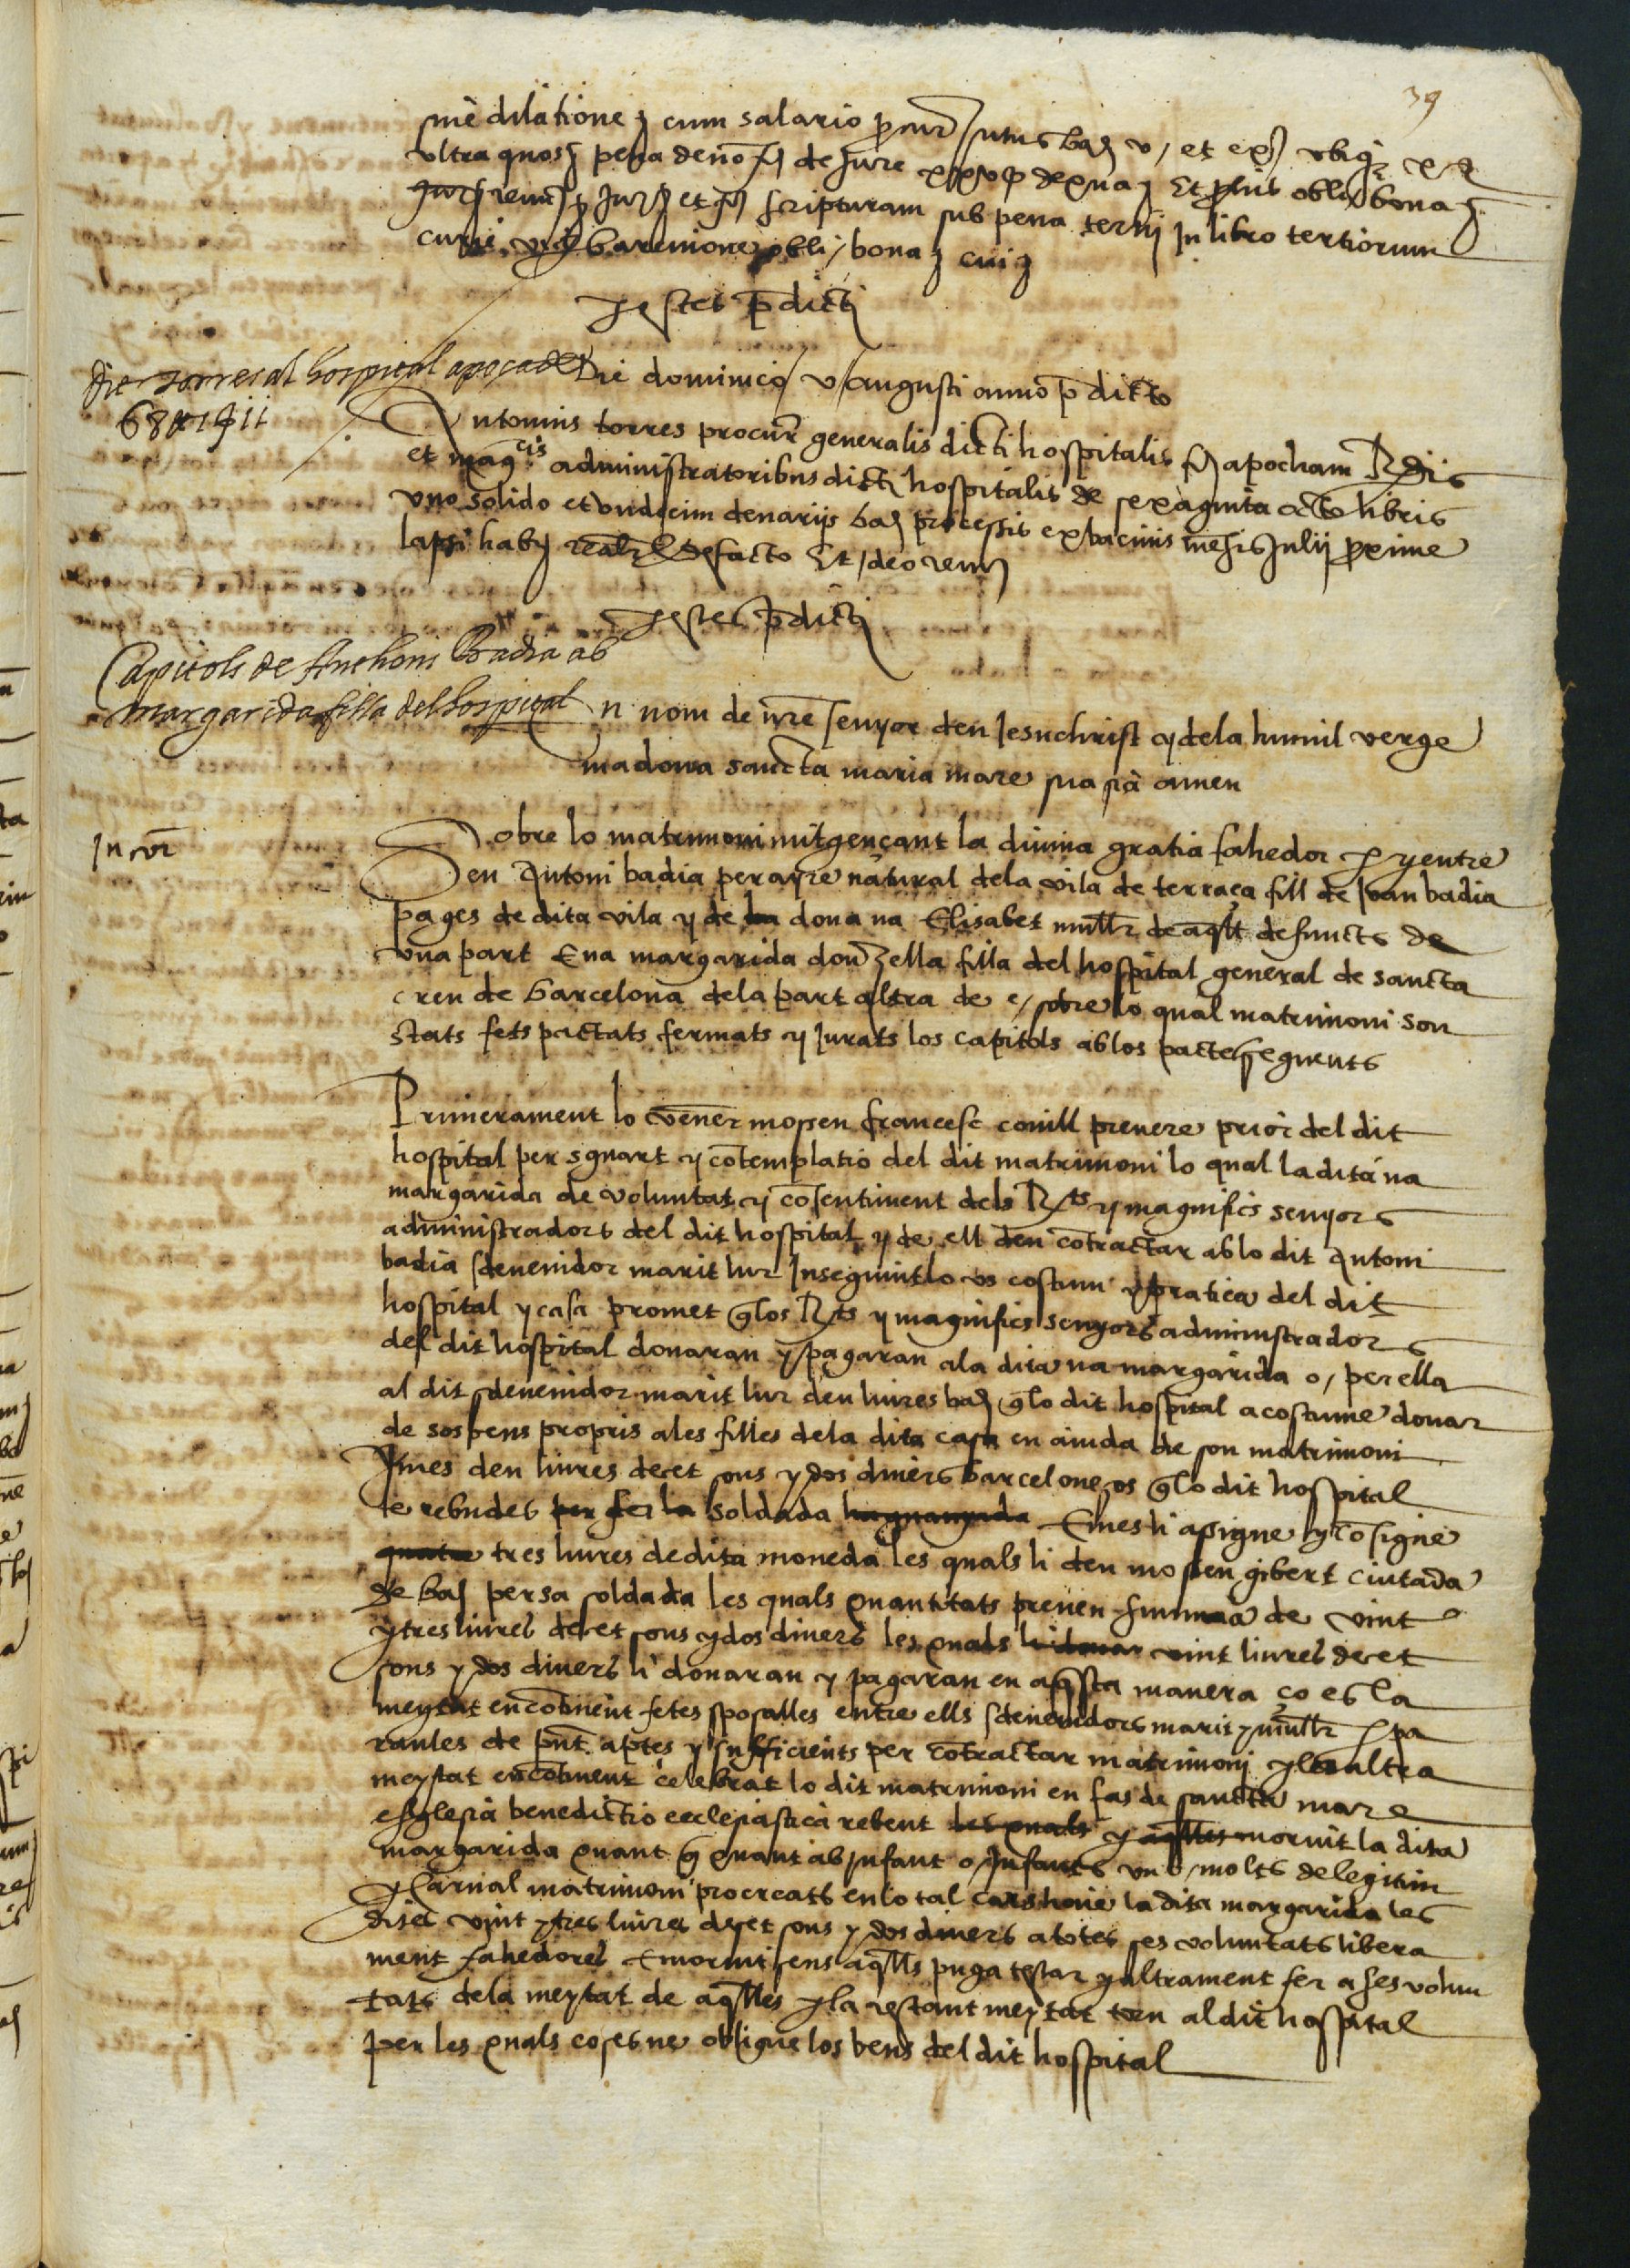 39
sine dilatione cum salario procur intus bar v, et
ultra quos pena de jure Et pro his obli bona
scripturam sub pena tertii In libro tertiorum
curie barcinone obli, bona
Testes predicti
Die dominico v augusti anno predicto
de torres al hospital apoca de
68 ll 1 s 11
Antonius torres procur generalis dicti hospitalis apocham Rdis
et magcis administratoribus dicti hospitalis de sexaginta octo libris
uno solido et undecim denariis bar processis ex bacinis mensis Julii proxime
lapsi hab realr de facto Et ideo renun
Testes predicti
Capitols de Anthoni Badia ab
margarida filla del hospital
En nom de nre senyor deu Jesuchrist y dela humil verge
madona sancta maria mare sua sia amen
In cvr
Sobre lo matrimoni mitgençant la divina gratia fahedor per y entre
den Antoni badia perayre natural dela vila de terraça fill de Joan badia
pages de dita vila y de la dona na Elisabet mullr de aqll defuncts de
una part E na margarida donzella filla del hospital general de sancta
creu de barcelona dela part altra de e, sobre lo qual matrimoni son
stats fets pactats fermats y jurats los capitols ab los pactes seguents
Primerament lo vener mossen francesc conill prevere prior del dit
hospital per sguart y contemplatio del dit matrimoni lo qual la dita na
margarida de voluntat y consentiment dels Rts y magnifics senyors
administradors del dit hospital y de ell deu contractar ab lo dit Antoni
badia sdevenidor marit lur Inseguint lo us costum y pratica del dit
hospital y casa promet q los Rts y magnifics senyors administradors
del dit hospital donaran y pagaran ala dita na margarida o, per ella
al dit sdevenidor marit lur deu liures bar q lo dit hospital acostume donar
de sos bens propris ales filles dela dita casa en aiuda de son matrimoni
Imes deu liures deset sous y dos diners barcelonesos q lo dit hospital
te rebudes per fer la soldada ha guanyada E mes li assigne y consigne
quatre tres liures de dita moneda les quals li deu mossen gibert ciutada
de bar per sa soldada les quals quantitats prenen summa de vint
y tres liures deset sous y dos diners les quals li donar vint liures deset
sous y dos diners li donaran y pagaran en aqsta manera ço es la
meytat encontinent fetes sposalles entre ells sdevenidors marit y mullr per pa
raules de pnt aptes y sufficients per contractar matrimoni y la altra
meytat encontinent celebrat lo dit matrimoni en fas de sancta mare
esglesia benedictio ecclesiastica rebent les quals y aqlles morint la dita
margarida quant q quant ab infant o, Infants un o, molts de legitim
y carnal matrimoni procreats en lo tal cars haie la dita margarida les
dites vint y tres liures deset sous y dos diners a totes ses voluntats libera
ment fahedores E morint sens aqlls puga testar y altrament fer a ses volun
tats dela meytat de aqlles y la restant meytat torn al dit hospital
per les quals coses ne obligue los bens del dit hospital